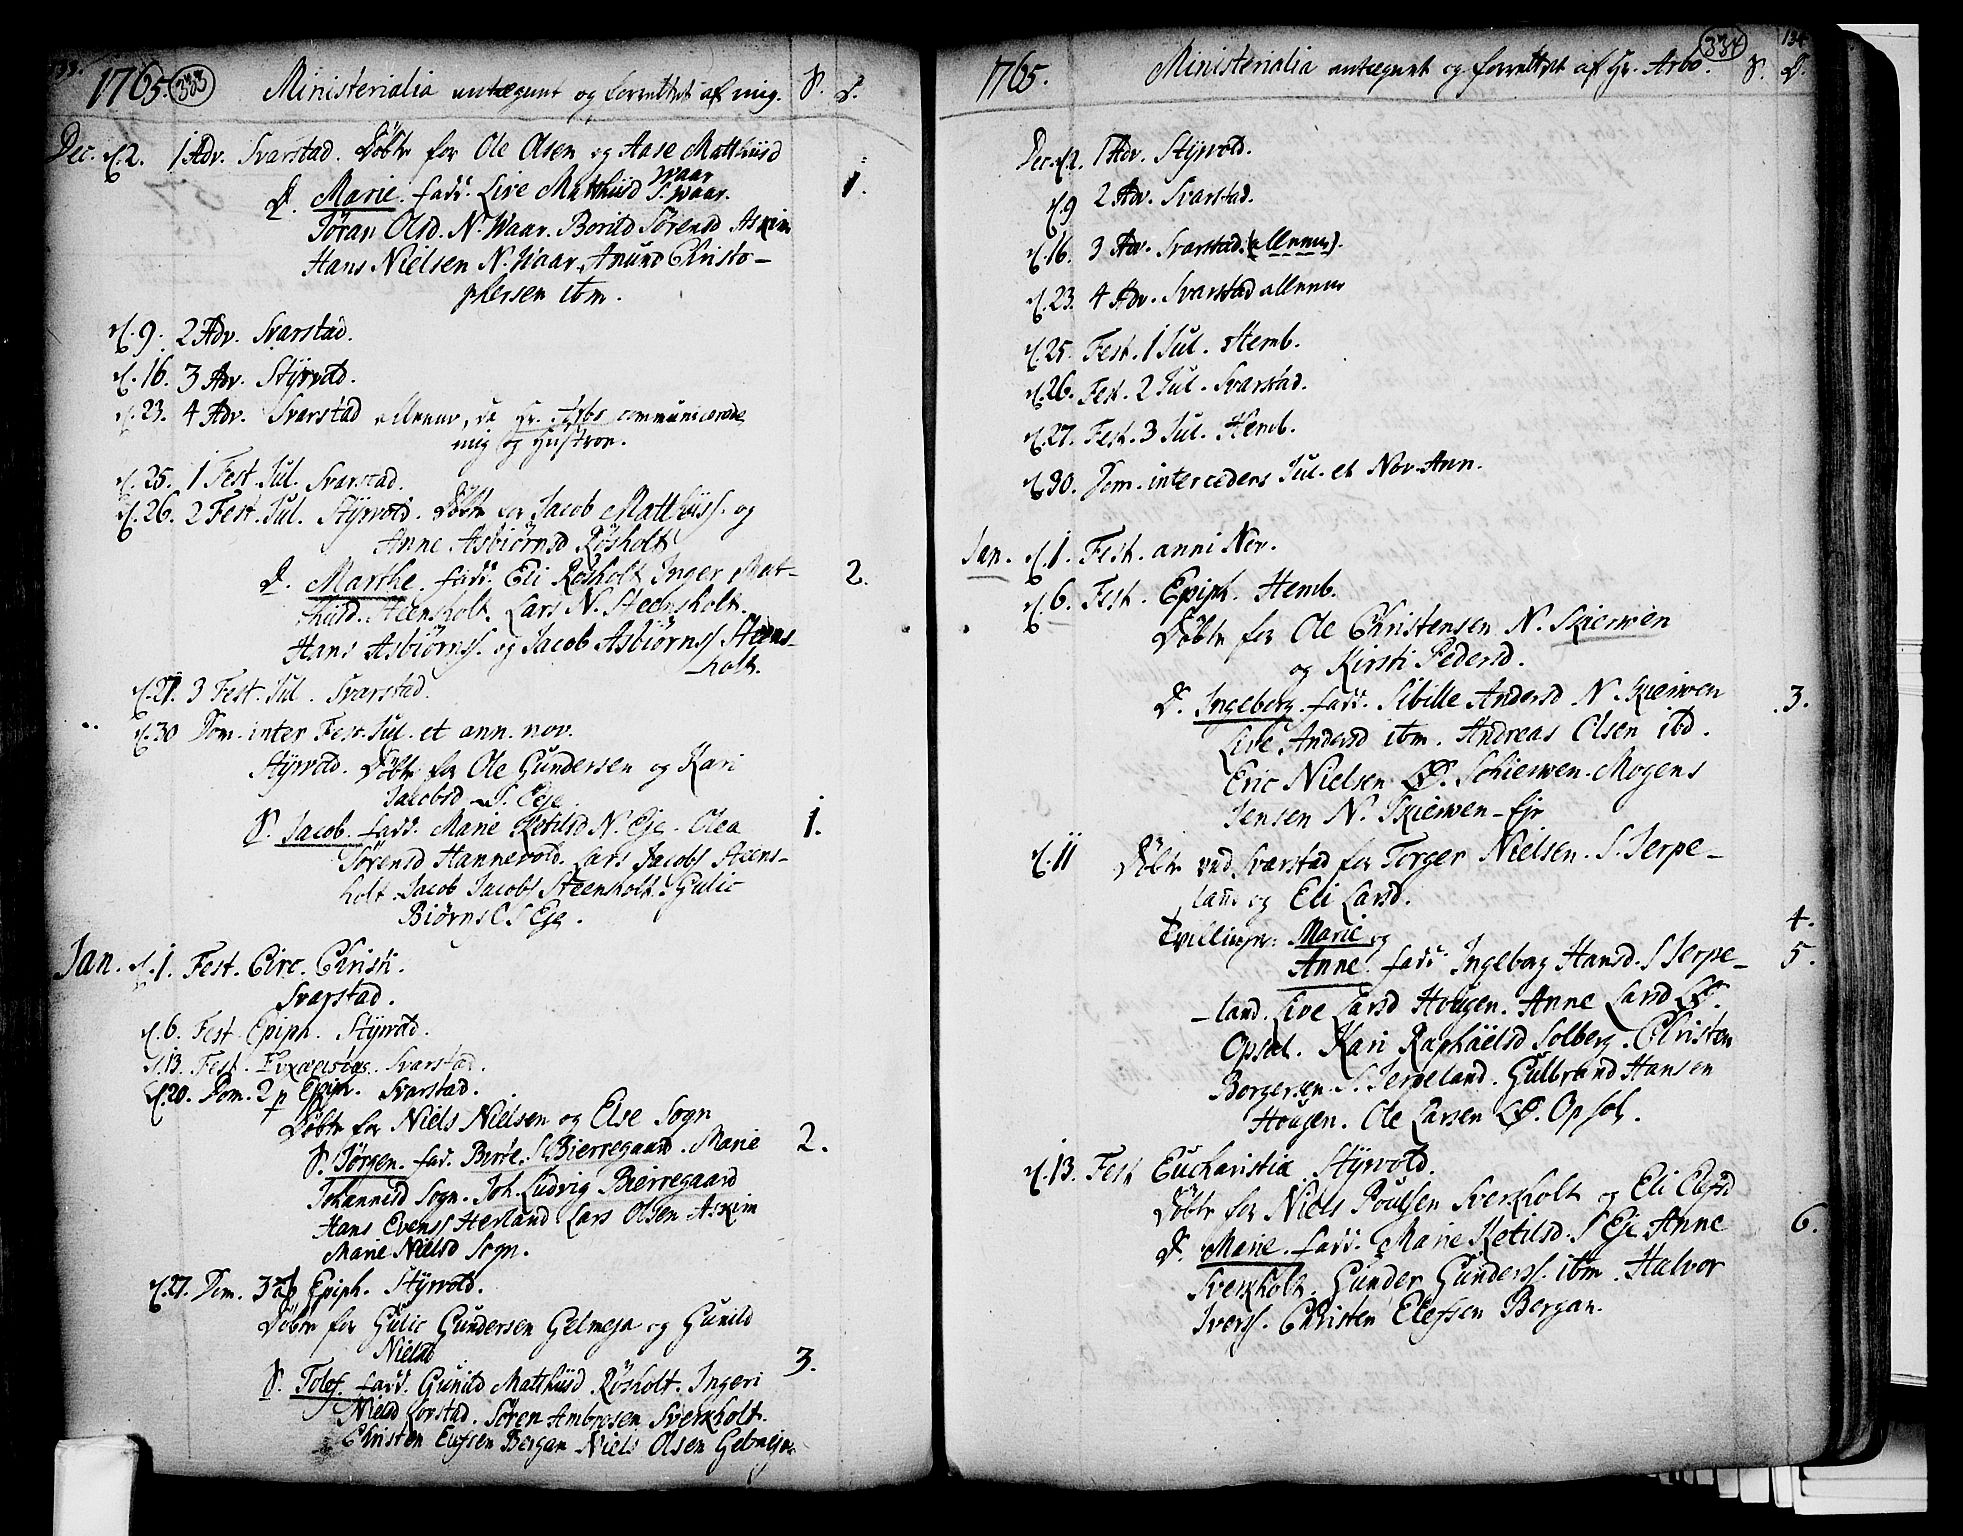 133.
1765. 333 Ministerialia antegnet og forrettet af mig. S. D.
Dec. d. 2. 1 Adv. Svarstad. Döbte for Ole Olsen og Aase Matthiisd
Waar
D. Marie. fadd. Live Matthiisd S. Waar. 1.
Jöran Olsd. N. Waar. Borild Sörensd Askim
Hans Nielsen N. Waar, Anund Christo-
phersen ibm.
d. 9. 2 Adv. Svarstad.
d. 16. 3 Adv. Styrvold.
d. 23. 4 Adv. Svarstad allene, da Hr. Arbo communicerede
mig og Hustroe.
d. 25. 1 Fest. Jul. Svarstad.
d. 26. 2 Fest. Jul. Styrvold. Döbte for Jacob Matthiiss. og
Anne Asbiörnsd Rösholt
D. Marthe. fadd. Eli Rösholt Inger Mat- 2.
thiisd. Steensholt. Lars N. Steensholt.
Hans Asbiörnss. og Jacob Asbiörnss Steens-
-holt.
d. 27. 3 Fest. Jul. Svarstad.
d. 30 Dom. inter Fest. Jul. et ann. nov.
Styrvold. Döbte for Ole Gundersen og Kari
Jacobsd S. Eje.
S. Jacob. fadd. Marie Ketilsd N. Eje. Olea 1.
Sörensd Hannevold. Lars Jacobs Steens-
holt. Jacob Jacobs Steensholt. Gulic
Biörns S Eje.
Jan. d. 1. Fest. Circ. Christi.
Svarstad.
d. 6. Fest. Epiph. Styrvold.
d. 13. Fest. Svarstad.
d. 20. Dom. 2 p Epiph. Svarstad.
Döbte for Niels Nielsen og Else Sogn
S. Jörgen. fad. Birte S Bierregaard. Marie 2.
Johannisd Sogn. Joh. Ludvig Bierregaard
Hans Evenss Herland Lars Olsen Askim
Marie Nielsd Sogn.
d. 27. Dom. 3 p Epiph. Styrvold.
Döbte for Gulic Gundersen Gelmeja og Gunild
Nielsd
S. Tolef. fadd. Gunild Matthiisd Rösholt. Ingeri 3.
Nielsd Lorstad. Sören Ambrosen Sverkholt.
Christen Elefsen Bergan Niels Olsen Gelmeja.
334 134
1765. Ministerialia antegnet og forrettet af Hr. Arbo. S. D.
Dec. d. 2. 1 Adv. Styrvold.
d. 9 2 Adv. Svarstad.
d. 16. 3 Adv. Svarstad (allene).
d. 23. 4 Adv. Svarstad allene
d. 25. Fest. 1 Jul. Hemb.
d. 26. Fest. 2 Jul. Svarstad.
d. 27. Fest. 3 Jul. Hemb.
d. 30. Dom. intercedens Jul. et Nov. Ann.
Jan. d. 1. Fest. anni Nov.
d. 6. Fest. Epiph. Hemb.
Döbte for Ole Christensen N. Skierven
og Kirsti Pedersd.
D. Ingeborg. fadd. Sibille Andersd N. Skierven 3.
Live Andersd ibm. Andreas Olsen ibd.
Eric Nielsen LØ. Schierven. Mogens
Jensen N. Skierven-Ejr
d. 11 Döbte ved Svarstad for Torger Nielsen. S. Jerpe-
land og Eli Larsd.
Tvillinger: Marie og 4.
Anne. fadd. Ingeborg Hansd. S Jerpe- 5.
-land. Live Larsd Hougen. Anne Larsd LØ.
Opsal. Kari Raphäelsd Solberg. Christen
Borgersen S. Jerpeland. Gulbrand Hansen
Hougen. Ole Larsen LØ. Opsal.
d. 13. Fest Eucharistiæ Styrvold.
Döbte for Niels Poulsen Sverkholt og Eli Elefsd
D. Marie. fadd. Marie Ketilsd. S Eje Anne 6.
Sverkholt. Gunder Gunderss. ibm. Halvor
Iverss. Christen Elefsen Bergan.